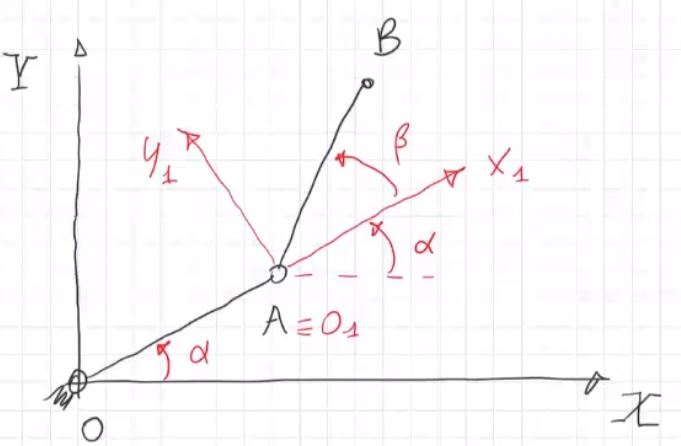 B
Y
y₁
β
X₁
α
A≡O₁
α
O
X